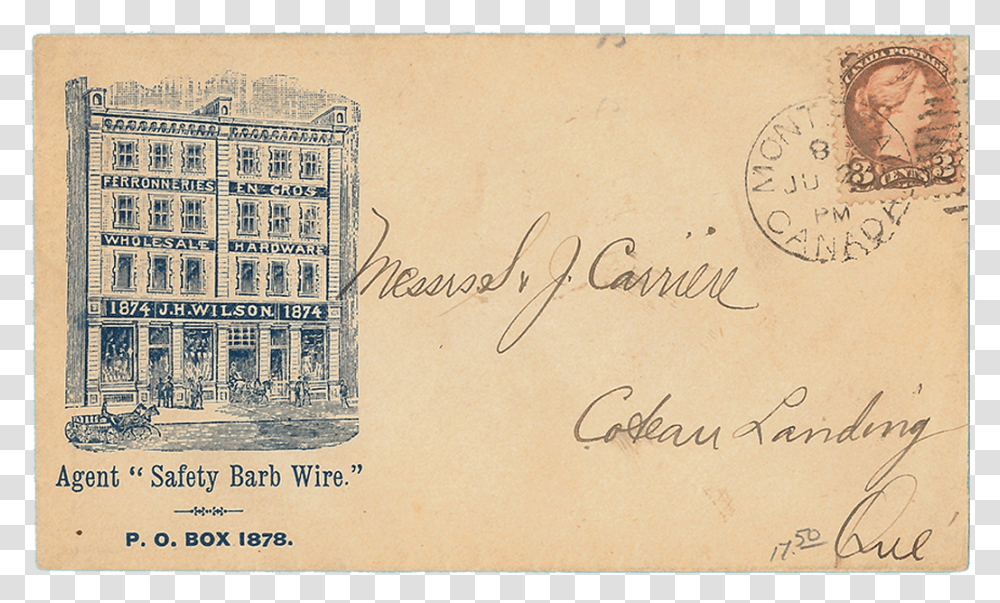 CANADA POSTAGE
3 CENTS 3
MONT
8
JU
PM
CANADA
FERRONNERIES EN GROS
WHOLESALE HARDWARE
1874 J.H. WILSON. 1874
Messrs S. J. Carrière
Coteau Landing
Qué
17.50
Agent “ Safety Barb Wire.”
P. O. BOX 1878.